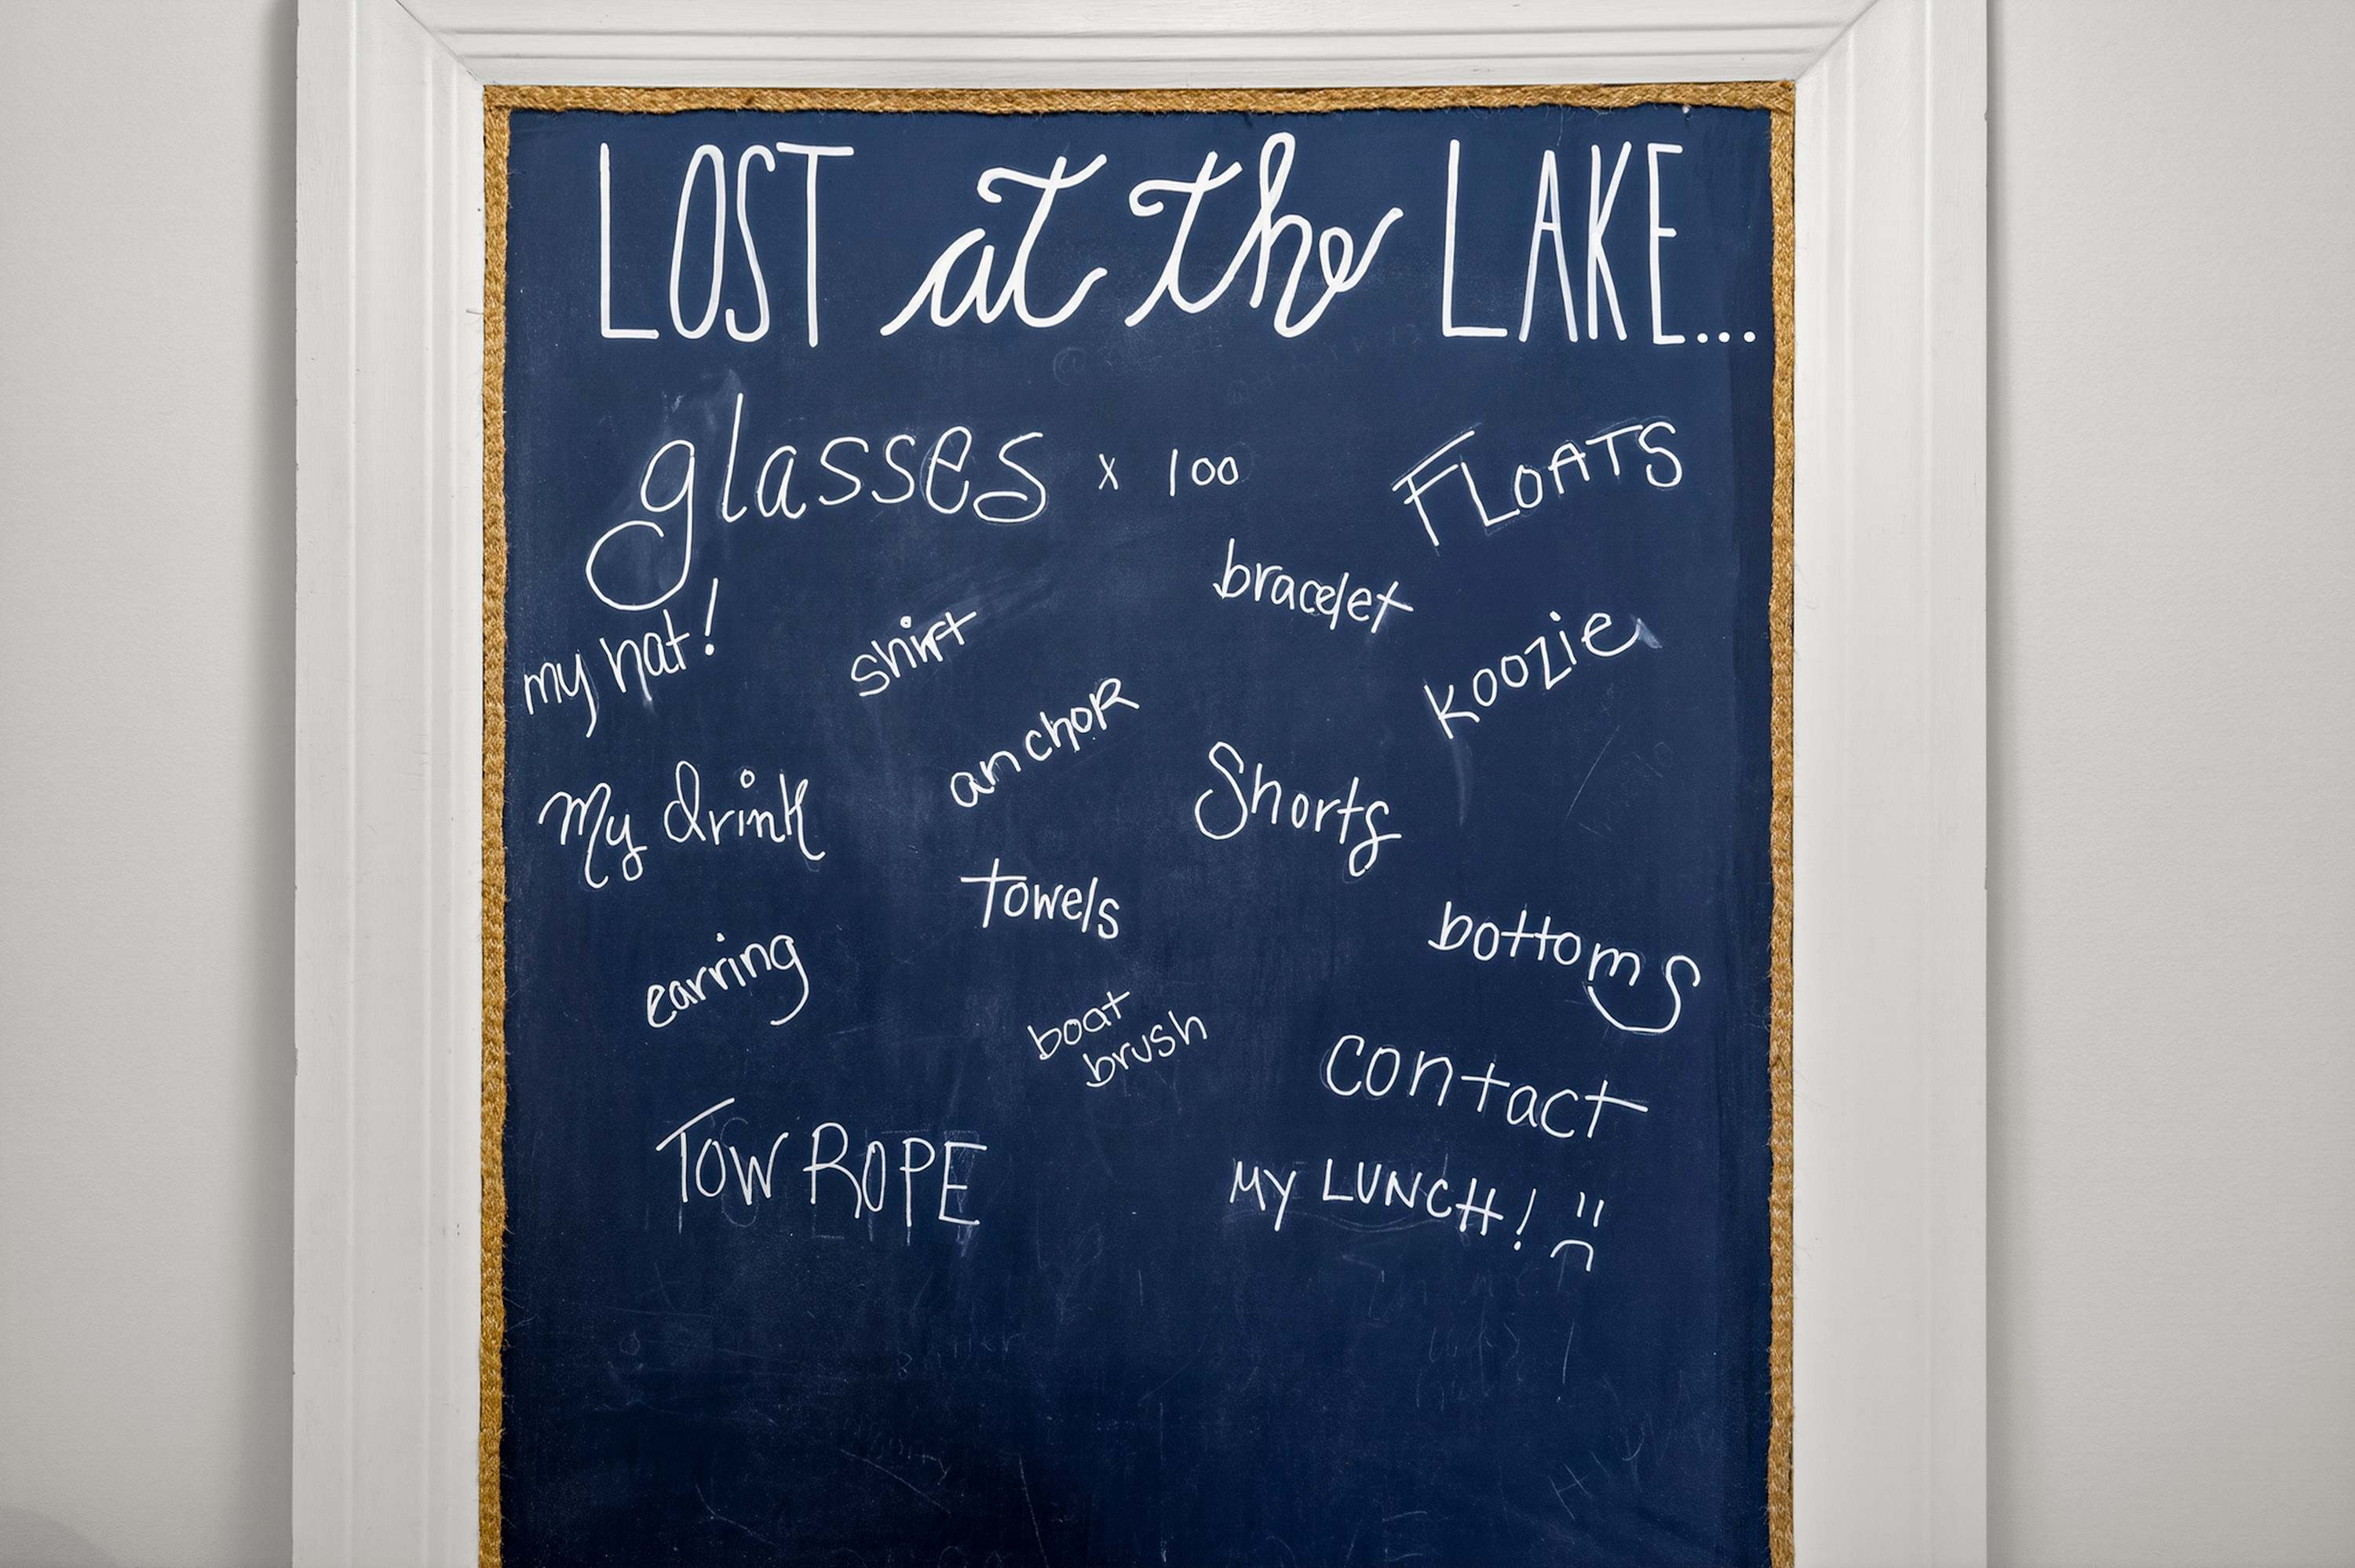 LOST at the LAKE...
glasses x 100
FLOATS
bracelet
my hat!
shirt
koozie
anchor
My drink
Shorts
towels
bottoms
earring
boat
brush
contact
TOW ROPE
MY LUNCH! :(